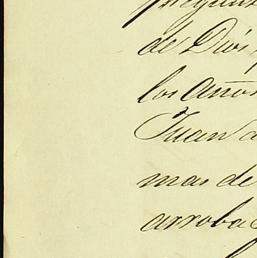 de Dios
los Años
Juan
mas de
arroba